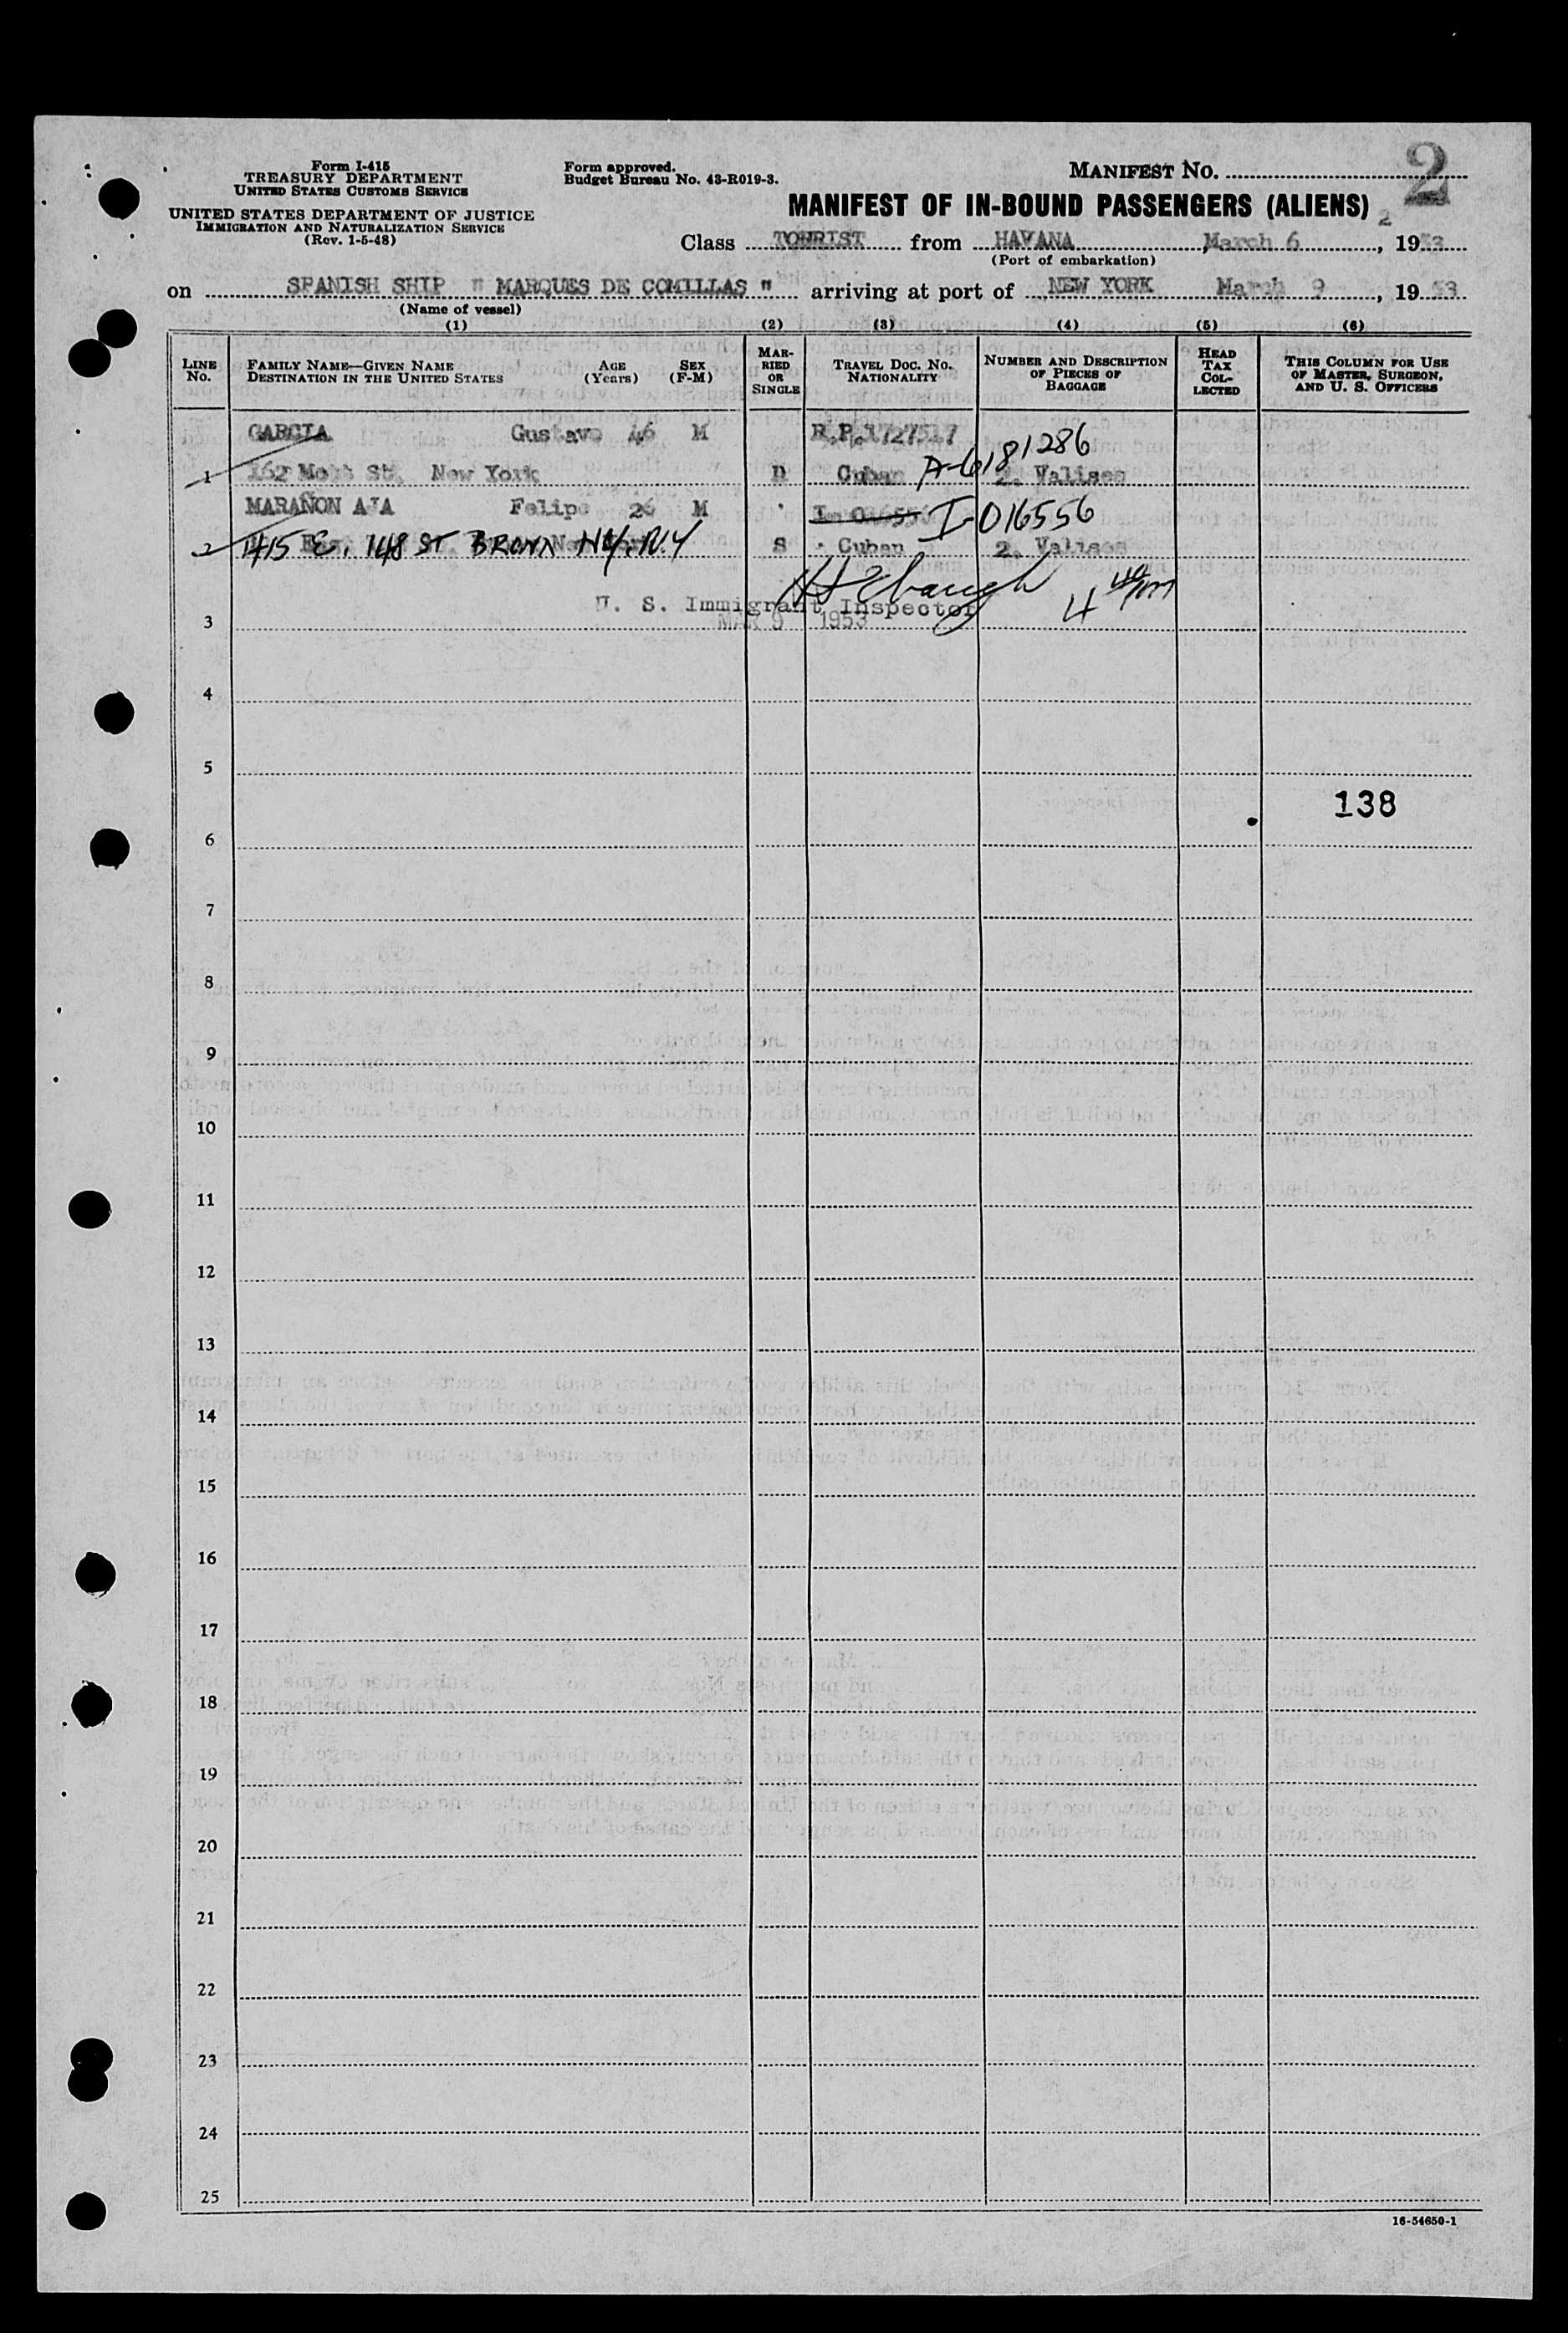 Form I-415
TREASURY DEPARTMENT
UNITED STATES CUSTOMS SERVICE
UNITED STATES DEPARTMENT OF JUSTICE
IMMIGRATION AND NATURALIZATION SERVICE
(Rev. 1-5-48)
Form approved.
Budget Bureau No. 43-R019-3.
MANIFEST NO. 2
MANIFEST OF IN-BOUND PASSENGERS (ALIENS) 2
Class TOURIST from HAVANA, March 6, 1953
(Port of embarkation)
on SPANISH SHIP " MARQUES DE COMILLAS " arriving at port of NEW YORK March 9, 1953
(Name of vessel)
(1) (2) (3) (4) (5) (6)
LINE No. FAMILY NAME—GIVEN NAME DESTINATION IN THE UNITED STATES AGE (Years) SEX (F-M) MARRIED OR SINGLE TRAVEL DOC. NO. NATIONALITY NUMBER AND DESCRIPTION OF PIECES OF BAGGAGE HEAD TAX COLLECTED THIS COLUMN FOR USE OF MASTER, SURGEON, AND U. S. OFFICERS
GARCIA Gustavo 46 M R.P. 1727517
A-6181286
1 162 St. New York D Cuban 2. Valises
MARAÑON Felipe 26 M I-016556
2 415 E. 148 ST BRONX NY. N.Y S Cuban 2. Valises
U. S. Immigrant Inspector
MAR 9 1953
3
4
5
138
6
7
8
9
10
11
12
13
14
15
16
17
18
19
20
21
22
23
24
25
16-54650-1